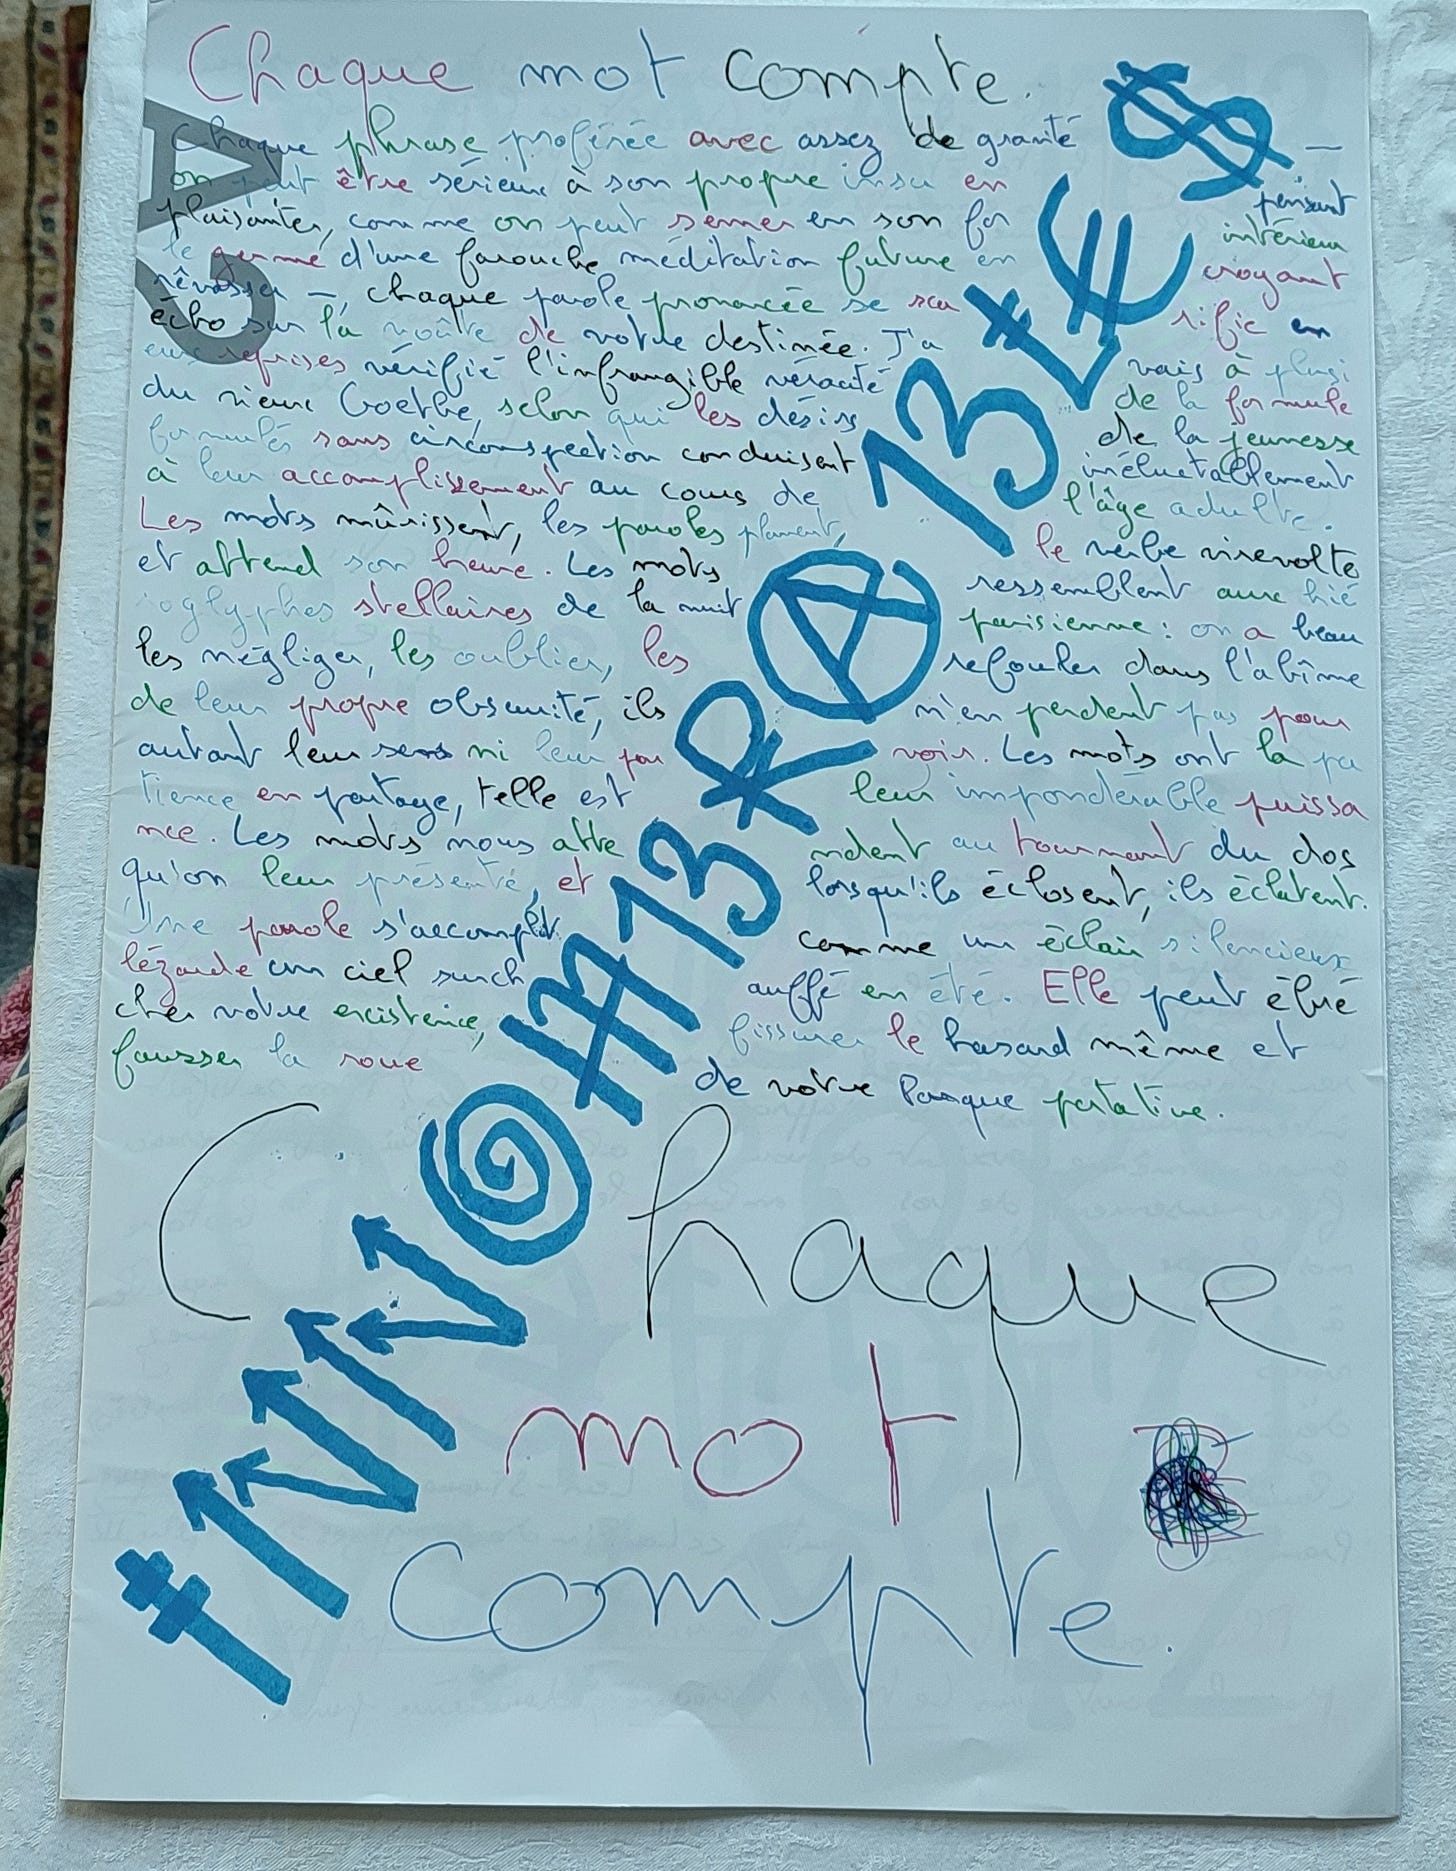 Chaque mot compte.
Chaque phrase proférée avec assez de gravité —
on peut être sérieux à son propre insu en pensant
plaisanter, comme on peut semer en son for intérieur
le germe d'une farouche méditation future en croyant
rêvasser —, chaque parole prononcée se sca rifie en
écho sur la voûte de votre destinée. J'a vais à plusi
eurs reprises vérifié l'infrangible véracité de la formule
du vieux Goethe, selon qui les désirs de la jeunesse
formulés sans circonspection conduisent inéluctablement
à leur accomplissement au cours de l'âge adulte.
Les mots mûrissent, les paroles planent, le verbe virevolte
et attend son heure. Les mots ressemblent aux hié
roglyphes stellaires de la nuit parisienne : on a beau
les négliger, les oublier, les refouler dans l'abîme
de leur propre obscurité, ils n'en perdent pas pour
autant leur sens ni leur pou voir. Les mots ont la pa
tience en partage, telle est leur impondérable puissa
nce. Les mots nous atte ndent au tournant du dos
qu'on leur présente, et lorsqu'ils éclosent, ils éclatent.
Une parole s'accomplit comme un éclair silencieux
lézarde un ciel surch auffé en été. Elle peut ébré
cher votre existence, fissurer le hasard même et
fausser la roue de votre Parque portative.
Chaque
mot
compte.